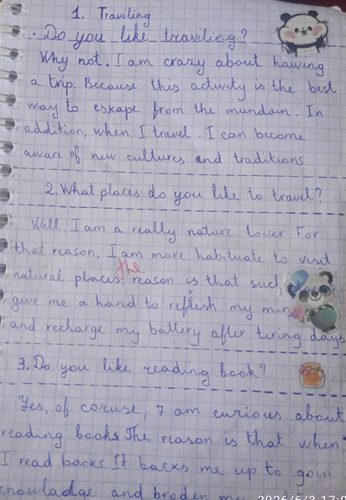 1. Traviling
. Do you like traviling?
Why not. I am crazy about having
a trip. Because this activity is the best
way to eskape from the mundain. In
addition, when I travel. I can become
aware of new cultures and traditions
2. What places do you like to travel?
Well, I am a really nature lover For
that reason, I am more habituate to visit
the
natural places, reason is that such
give me a hand to reflesh my mind
and recharge my battery after tiring days
3. Do you like reading book?
Yes, of coruse, I am curious about
reading books The reason is that when
I read books It backs me up to gain
knowladge and broden my